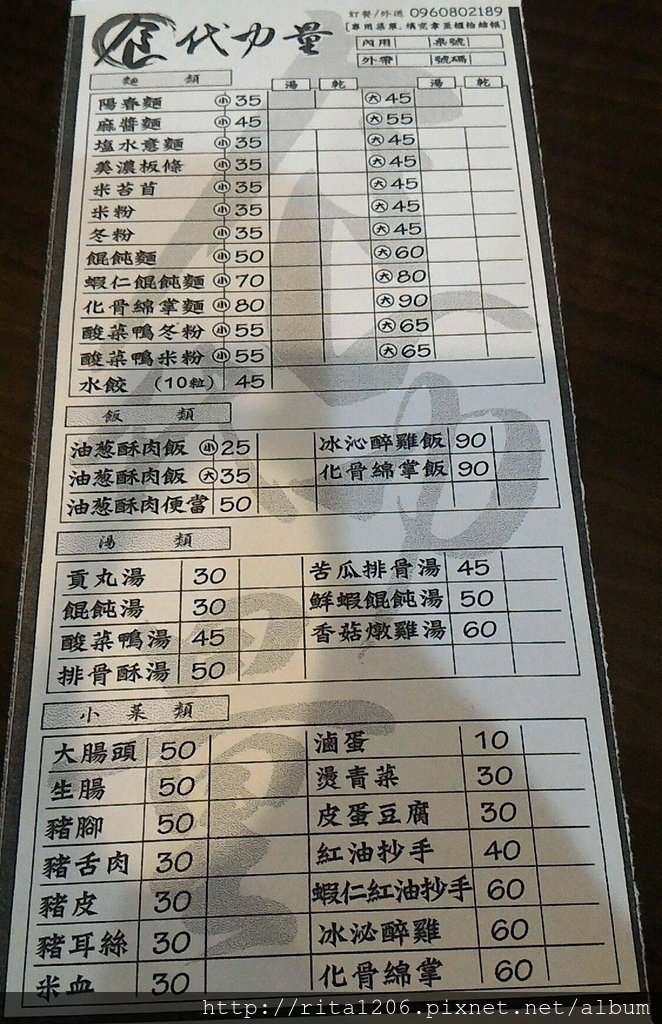 食代力量 訂餐/外送 0960802189
[專用菜單,填完拿至櫃檯結帳]
內用 桌號
外帶 號碼
麵 類 湯 乾 湯 乾
陽春麵 小 35 大 45
麻醬麵 小 45 大 55
塩水意麵 小 35 大 45
美濃板條 小 35 大 45
米苔首 小 35 大 45
米粉 小 35 大 45
冬粉 小 35 大 45
餛飩麵 小 50 大 60
蝦仁餛飩麵 小 70 大 80
化骨綿掌麵 小 80 大 90
酸菜鴨冬粉 小 55 大 65
酸菜鴨米粉 小 55 大 65
水餃 (10粒) 45
飯 類
油葱酥肉飯 小 25 冰沁醉雞飯 90
油葱酥肉飯 大 35 化骨綿掌飯 90
油葱酥肉便當 50
湯 類
貢丸湯 30 苦瓜排骨湯 45
餛飩湯 30 鮮蝦餛飩湯 50
酸菜鴨湯 45 香菇燉雞湯 60
排骨酥湯 50
小 菜 類
大腸頭 50 滷蛋 10
生腸 50 燙青菜 30
豬腳 50 皮蛋豆腐 30
豬舌肉 30 紅油抄手 40
豬皮 30 蝦仁紅油抄手 60
豬耳絲 30 冰泌醉雞 60
米血 30 化骨綿掌 60
http://rita1206.pixnet.net/album